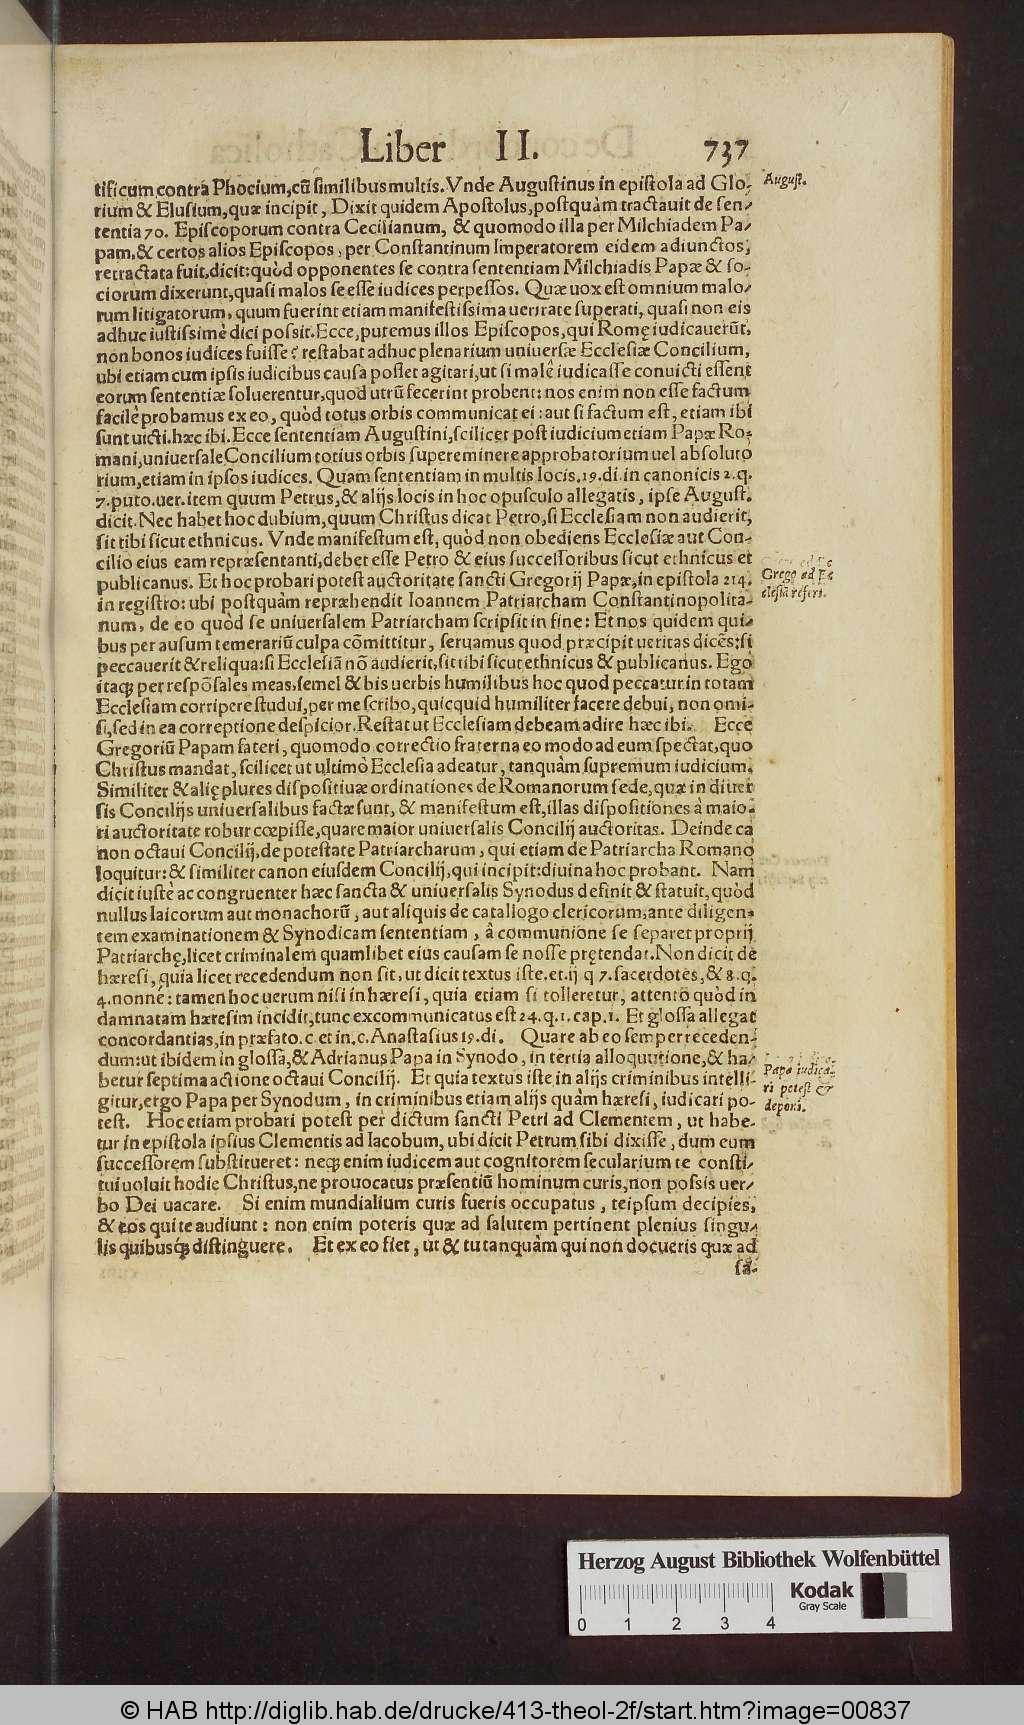 Liber II. 737
tificum contra Phocium, cũ similibus multis. Vnde Augustinus in epistola ad Glo-
August.
rium & Elusium, quæ incipit, Dixit quidem Apostolus, postquàm tractauit de sen-
tentia 70. Episcoporum contra Cecilianum, & quomodo illa per Milchiadem Pa-
pam, & certos alios Episcopos, per Constantinum Imperatorem eidem adiunctos,
retractata fuit, dicit: quòd opponentes se contra sententiam Milchiadis Papæ & so-
ciorum dixerunt, quasi malos se esse iudices perpessos. Quæ uox est omnium malo-
rum litigatorum, quum fuerint etiam manifestissima ueritate superati, quasi non eis
adhuc iustissimè dici possit. Ecce, putemus illos Episcopos, qui Romę iudicauerũt,
non bonos iudices fuisse? restabat adhuc plenarium uniuersæ Ecclesiæ Concilium,
ubi etiam cum ipsis iudicibus causa posset agitari, ut si malè iudicasse conuicti essent
eorum sententiæ soluerentur, quod utrũ fecerint probent: nos enim non esse factum
facilè probamus ex eo, quòd totus orbis communicat ei: aut si factum est, etiam ibi
sunt uicti. hæc ibi. Ecce sententiam Augustini, scilicet post iudicium etiam Papæ Ro-
mani, uniuersale Concilium totius orbis supereminere approbatorium uel absoluto
rium, etiam in ipsos iudices. Quam sententiam in multis locis, 19. di. in canonicis 2. q.
7. puto. uer. item quum Petrus, & alijs locis in hoc opusculo allegatis, ipse August.
dicit. Nec habet hoc dubium, quum Christus dicat Petro, si Ecclesiam non audierit,
sit tibi sicut ethnicus. Vnde manifestum est, quòd non obediens Ecclesiæ aut Con-
cilio eius eam repræsentanti, debet esse Petro & eius successoribus sicut ethnicus et
publicanus. Et hoc probari potest auctoritate sancti Gregorij Papæ, in epistola 214.
Grego ad Ec
clesiã referi.
in registro: ubi postquàm repræhendit Ioannem Patriarcham Constantinopolita-
num, de eo quòd se uniuersalem Patriarcham scripsit in fine: Et nos quidem qui-
bus per ausum temerariũ culpa cõmittitur, seruamus quod præcipit ueritas dicẽs: si
peccauerit & reliqua: si Ecclesiã nõ audierit, sit tibi sicut ethnicus & publicanus. Ego
itaq; per respõsales meas, semel & bis uerbis humilibus hoc quod peccatur in totam
Ecclesiam corripere studui, per me scribo, quicquid humiliter facere debui, non omi-
si, sed in ea correptione despicior. Restat ut Ecclesiam debeam adire hæc ibi. Ecce
Gregoriũ Papam fateri, quomodo correctio fraterna eo modo ad eum spectat, quo
Christus mandat, scilicet ut ultimò Ecclesia adeatur, tanquàm supremum iudicium.
Similiter & alię plures dispositiuæ ordinationes de Romanorum sede, quæ in diuer
sis Concilijs uniuersalibus factæ sunt, & manifestum est, illas dispositiones à maio-
ri auctoritate robur cœpisse, quare maior uniuersalis Concilij auctoritas. Deinde ca
non octaui Concilij, de potestate Patriarcharum, qui etiam de Patriarcha Romano
loquitur: & similiter canon eiusdem Concilij, qui incipit: diuina hoc probant. Nam
dicit iustè ac congruenter hæc sancta & uniuersalis Synodus definit & statuit, quòd
nullus laicorum aut monachorũ, aut aliquis de catallogo clericorum, ante diligen-
tem examinationem & Synodicam sententiam, à communione se separet proprij
Patriarchę, licet criminalem quamlibet eius causam se nosse prętendat. Non dicit de
hæresi, quia licet recedendum non sit, ut dicit textus iste. et ij q 7. sacerdotes, & 8. q.
4. nonnè: tamen hoc uerum nisi in hæresi, quia etiam si tolleretur, attento quòd in
damnatam hæresim incidit, tunc excommunicatus est 24. q. 1. cap. 1. Et glossa allegat
concordantias, in præfato. c. et in. c. Anastasius 19. di. Quare ab eo semper receden-
dum: ut ibidem in glossa, & Adrianus Papa in Synodo, in tertia alloquutione, & ha-
betur septima actione octaui Concilij. Et quia textus iste in alijs criminibus intelli-
Papa iudica-
ri potest &
deponi.
gitur, ergo Papa per Synodum, in criminibus etiam alijs quàm hæresi, iudicari po-
test. Hoc etiam probari potest per dictum sancti Petri ad Clementem, ut habe-
tur in epistola ipsius Clementis ad Iacobum, ubi dicit Petrum sibi dixisse, dum eum
successorem substitueret: neq; enim iudicem aut cognitorem secularium te consti-
tui uoluit hodie Christus, ne prouocatus præsentiũ hominum curis, non possis uer-
bo Dei uacare. Si enim mundialium curis fueris occupatus, teipsum decipies,
& eos qui te audiunt: non enim poteris quæ ad salutem pertinent plenius singu-
lis quibusq́; distinguere. Et ex eo fiet, ut & tu tanquàm qui non docueris quæ ad
sa-
Herzog August Bibliothek Wolfenbüttel
Kodak
Gray Scale
0 1 2 3 4
© HAB http://diglib.hab.de/drucke/413-theol-2f/start.htm?image=00837